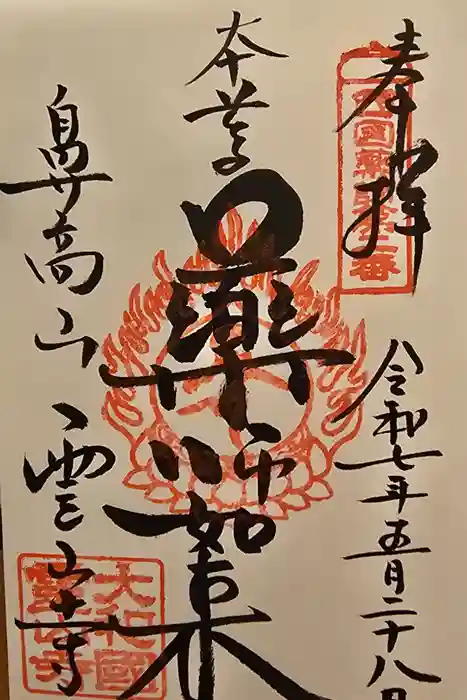 奉拝
西國薬師第二番
令和七年五月二十八日
本尊
薬師如来
鼻高山 霊山寺
大和國
霊山寺